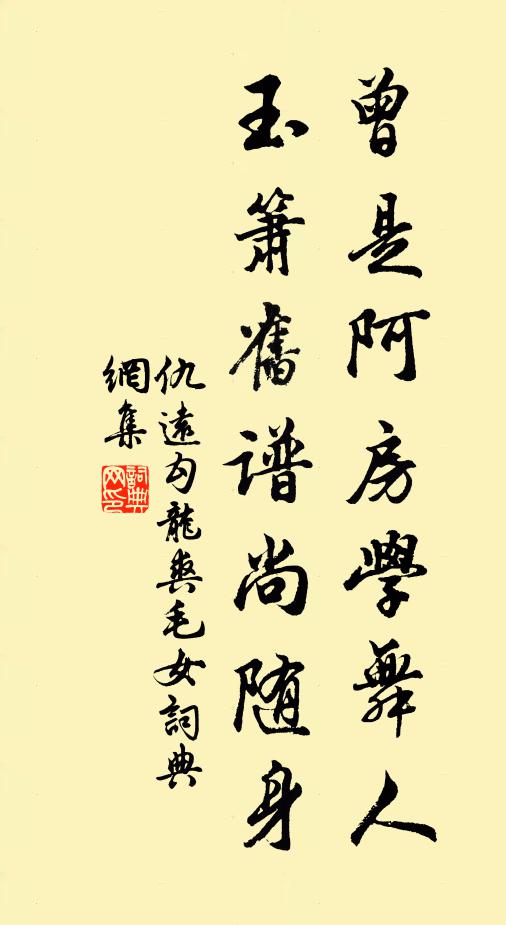 曾是阿房學舞人
玉簫舊譜尚随身
仇遠勾龍爽毛女詞典
網集
詞典網印